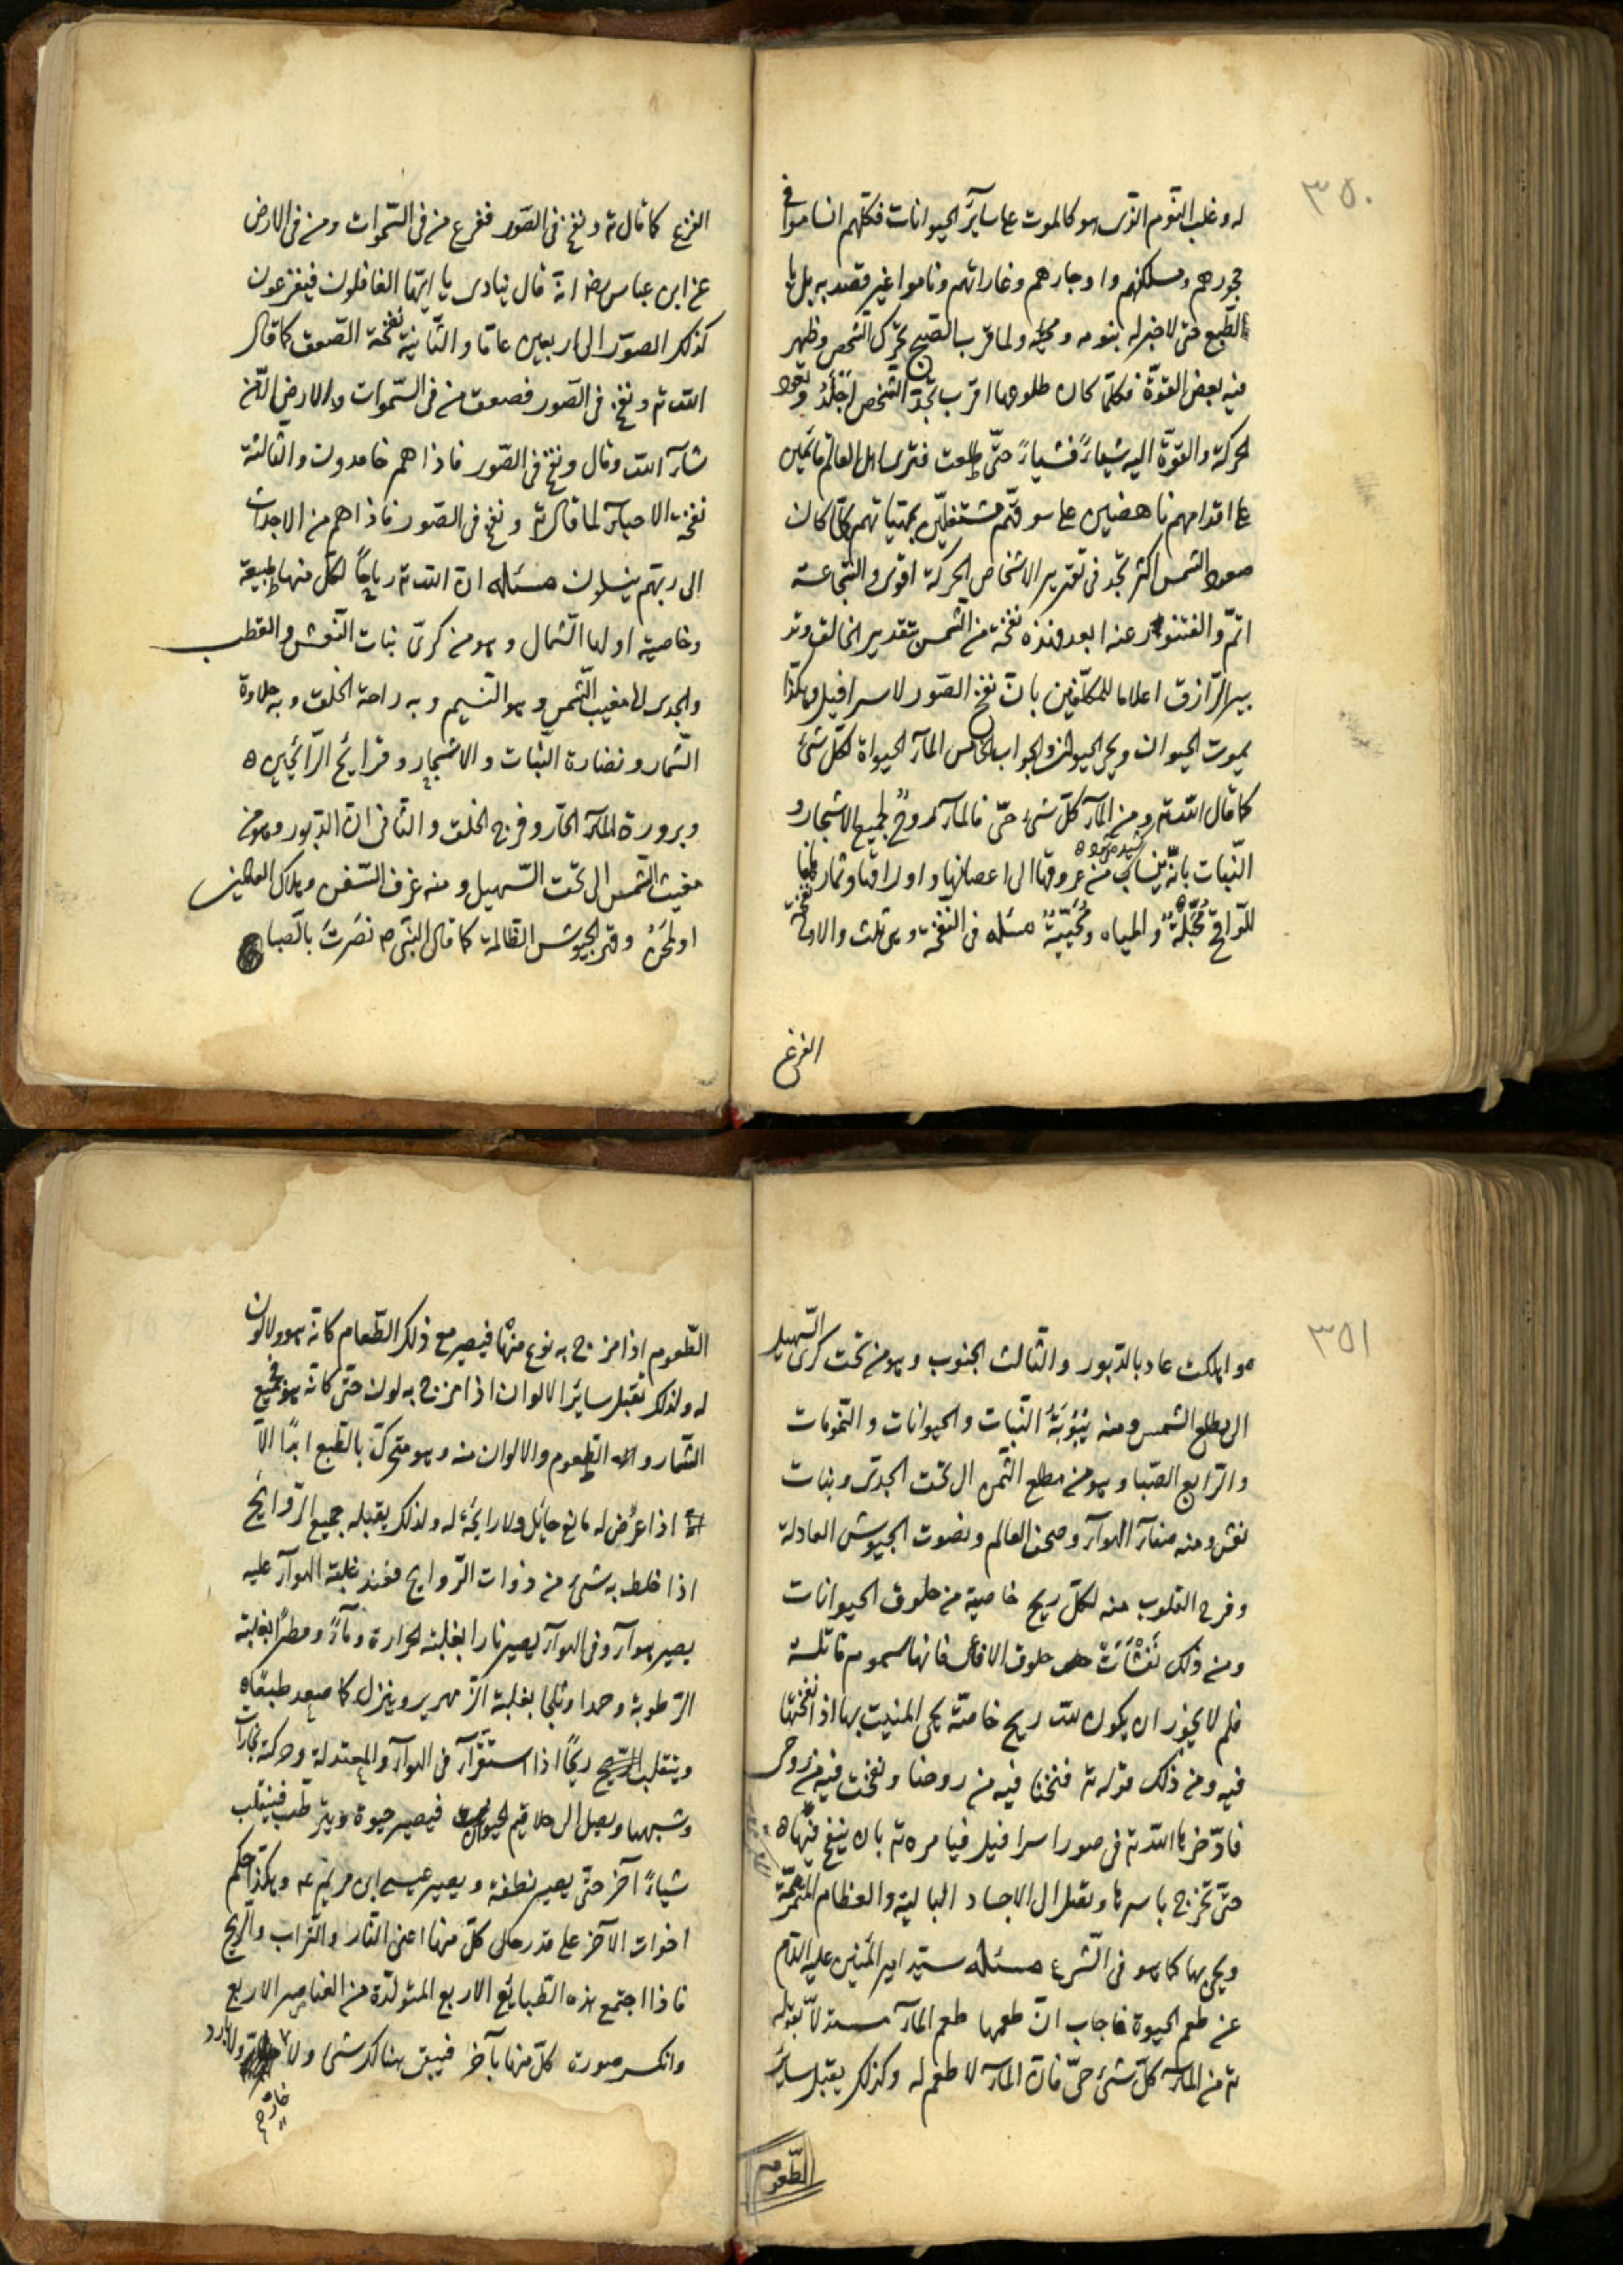 ٣٥٠
له وغلب النوم الذى هو كالموت على سائر الحيوانات فكلهم انساموا فى
جحورهم ومسكنهم واوجارهم وغاراتهم وناموا غير قصد به بل با
الطبع حتى لا خبر له بنومه ولما قرب الصبح تحرك الشخص وظهر
فيه بعض القوة فكلما كان طلوعها اقرب تجد الشخص اجلد وتعود
الحركة والقوة اليه شيئا فشيئا حتى طلعت فترى اهل العالم قائمين
على اقدامهم ناهضين على سوقهم مشتغلين بمهماتهم كلما كان
صعود الشمس اكثر تجد فى تقدير الاشخاص الحركة اقوى والشجاعة
اتم والفتور عنه ابعد فهذه نفخة من الشمس بتقدير الخالق وتد
بير الرازق اعلاما للمكلفين بان نفخ الصور لاسرافيل وهكذا
يموت الحيوان ويحى الحيوان والجواب الخامس الماء الحيواة لكل شئ
كما قال الله تع ومن الماء كل شئ حى فالماء روح لجميع الاشجار و
النبات بانه ينساب من عروقها الى اعصانها واوراقها وثمارها
للواقح والمياه مسئله فى النفخة وهى ثلث والاولى نفخة
الفزع
الفزع كما قال تع ونفخ فى الصور ففزع من فى السموات ومن فى الارض
عن ابن عباس رض انه قال ينادى يا ايها الغافلون فيفزعون
كذلك الصور الى اربعين عاما والثانية نفخة الصعق كما قال
الله تع ونفخ فى الصور فصعق من فى السموات والارض الا من
شاء الله وقال ونفخ فى الصور فاذا هم خامدون والثالثة
نفخة الاحياء لما قال تع ونفخ فى الصور فاذا هم من الاجداث
الى ربهم ينسلون مسئله ان الله تع رياحا لكل منها طبيعة
وخاصية اولها الشمال وهو من كرسى بنات النعش والقطب
والجدى الى مغيب الشمس وهو النسيم وبه راحة الخلق وبه حلاوة
الثمار ونضارة النبات والاشجار
وبرودة الماء الحار وفرح الخلق والثانى ان الدبور وهو من
مغيب الشمس الى تحت السهيل ومنه غرف السفن وهلاك العالمين
وقهر الجيوش الظالمة كما قال النبى ص نصرت بالصبا
٣٥١
واهلكت عاد بالدبور والثالث الجنوب وهو من تحت كرسى السهيل
الى مطلع الشمس ومنه النبات والحيوانات والنمومات
والرابع الصبا وهو من مطلع الشمس الى تحت الجدى وبنات
نعش ومنه صفاء الهواء وصحة العالم ونصرت الجيوش العادلة
وفرح القلوب منه لكل ريح خاصية من حلوق الحيوانات
ومن ذلك حلوق الافاعى فانها سموم قاتلة
فلم لا يجوز ان يكون لله ريح خاصة يحى الميت بها اذا نفختها
فيه ومن ذلك قوله تع فنفخنا فيه من روحنا ونفخت فيه من روحى
فادخرها الله تع فى صور اسرافيل فيامره تع بان ينفخ فيها
حتى تخرج باسرها وتقبل الى الاجساد البالية والعظام
ويحى بها كما هو فى الشرع مسئله سئيد امير المؤمنين عليه السلام
عن طعم الحيوة فاجاب ان طعمها طعم الماء مستدلا بقوله
تع من الماء كل شئ حى فان الماء لا طعم له وكذلك يقبل سائر
الطعوم
الطعوم اذا مزج به نوع منها فيصير مع ذلك الطعام كانه هو ولا لون
له ولذلك تقبل سائر الالوان اذا مزج به لون حتى كانه هو فجميع
الثمار والطعوم والالوان منه وهو متحرك بالطبع ابدا الا
اذا عرض له مانع حايل ولا رايحة له ولذلك يقبله جميع الروايح
اذا خلط به شئ من ذوات الروايح فعند غلبة الهواء عليه
يصير هواء وفى الهواء يصير نارا بغلبة الحرارة وماء ومطرا بغلبة
الرطوبة وثلجا بغلبة الزمهرير وينزل كما صعد طبقاه
وينقلب ريحا اذا استقر فى الهواء والمعتدلة وحركة
وشبهها ويصل الى حلاقيم الحيوان فيصير حيوة فينقلب
شيئا آخر حتى يصير نطفة ويصير عيسى ابن مريم ع وهكذا حكم
اخوات الآخر على قدر حال كل منها اعنى النار والتراب والريح
فاذا اجتمع هذه الطبايع الاربع المتولدة من العناصر الاربع
وانكسر صورة كل منها بآخر فيبقى هناك شئ ولا ولا بارد